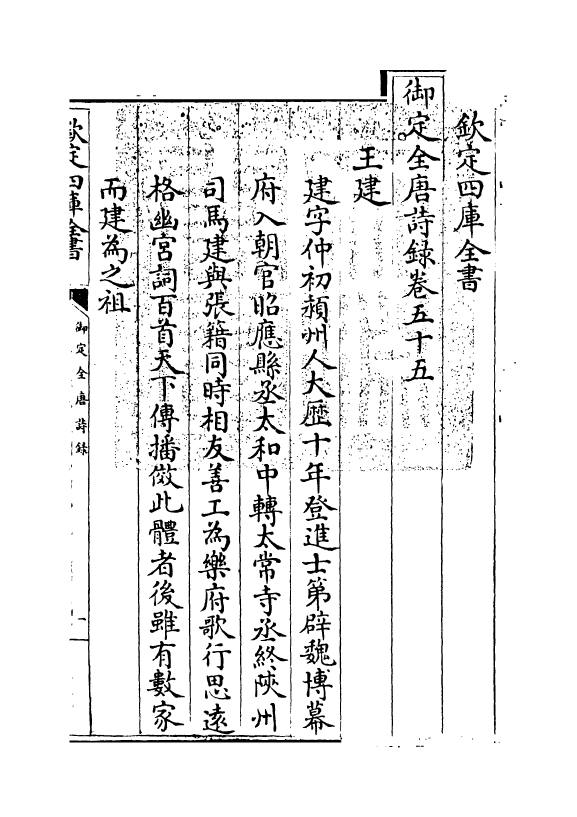 欽定四庫全書
御定全唐詩錄卷五十五
王建
建字仲初潁州人大歷十年登進士第辟魏博幕
府入朝官昭應縣丞太和中轉太常寺丞終陝州
司馬建與張籍同時相友善工為樂府歌行思遠
格幽宮詞百首天下傳播倣此體者後雖有數家
而建為之祖
欽定四庫全書
御定全唐詩錄
一